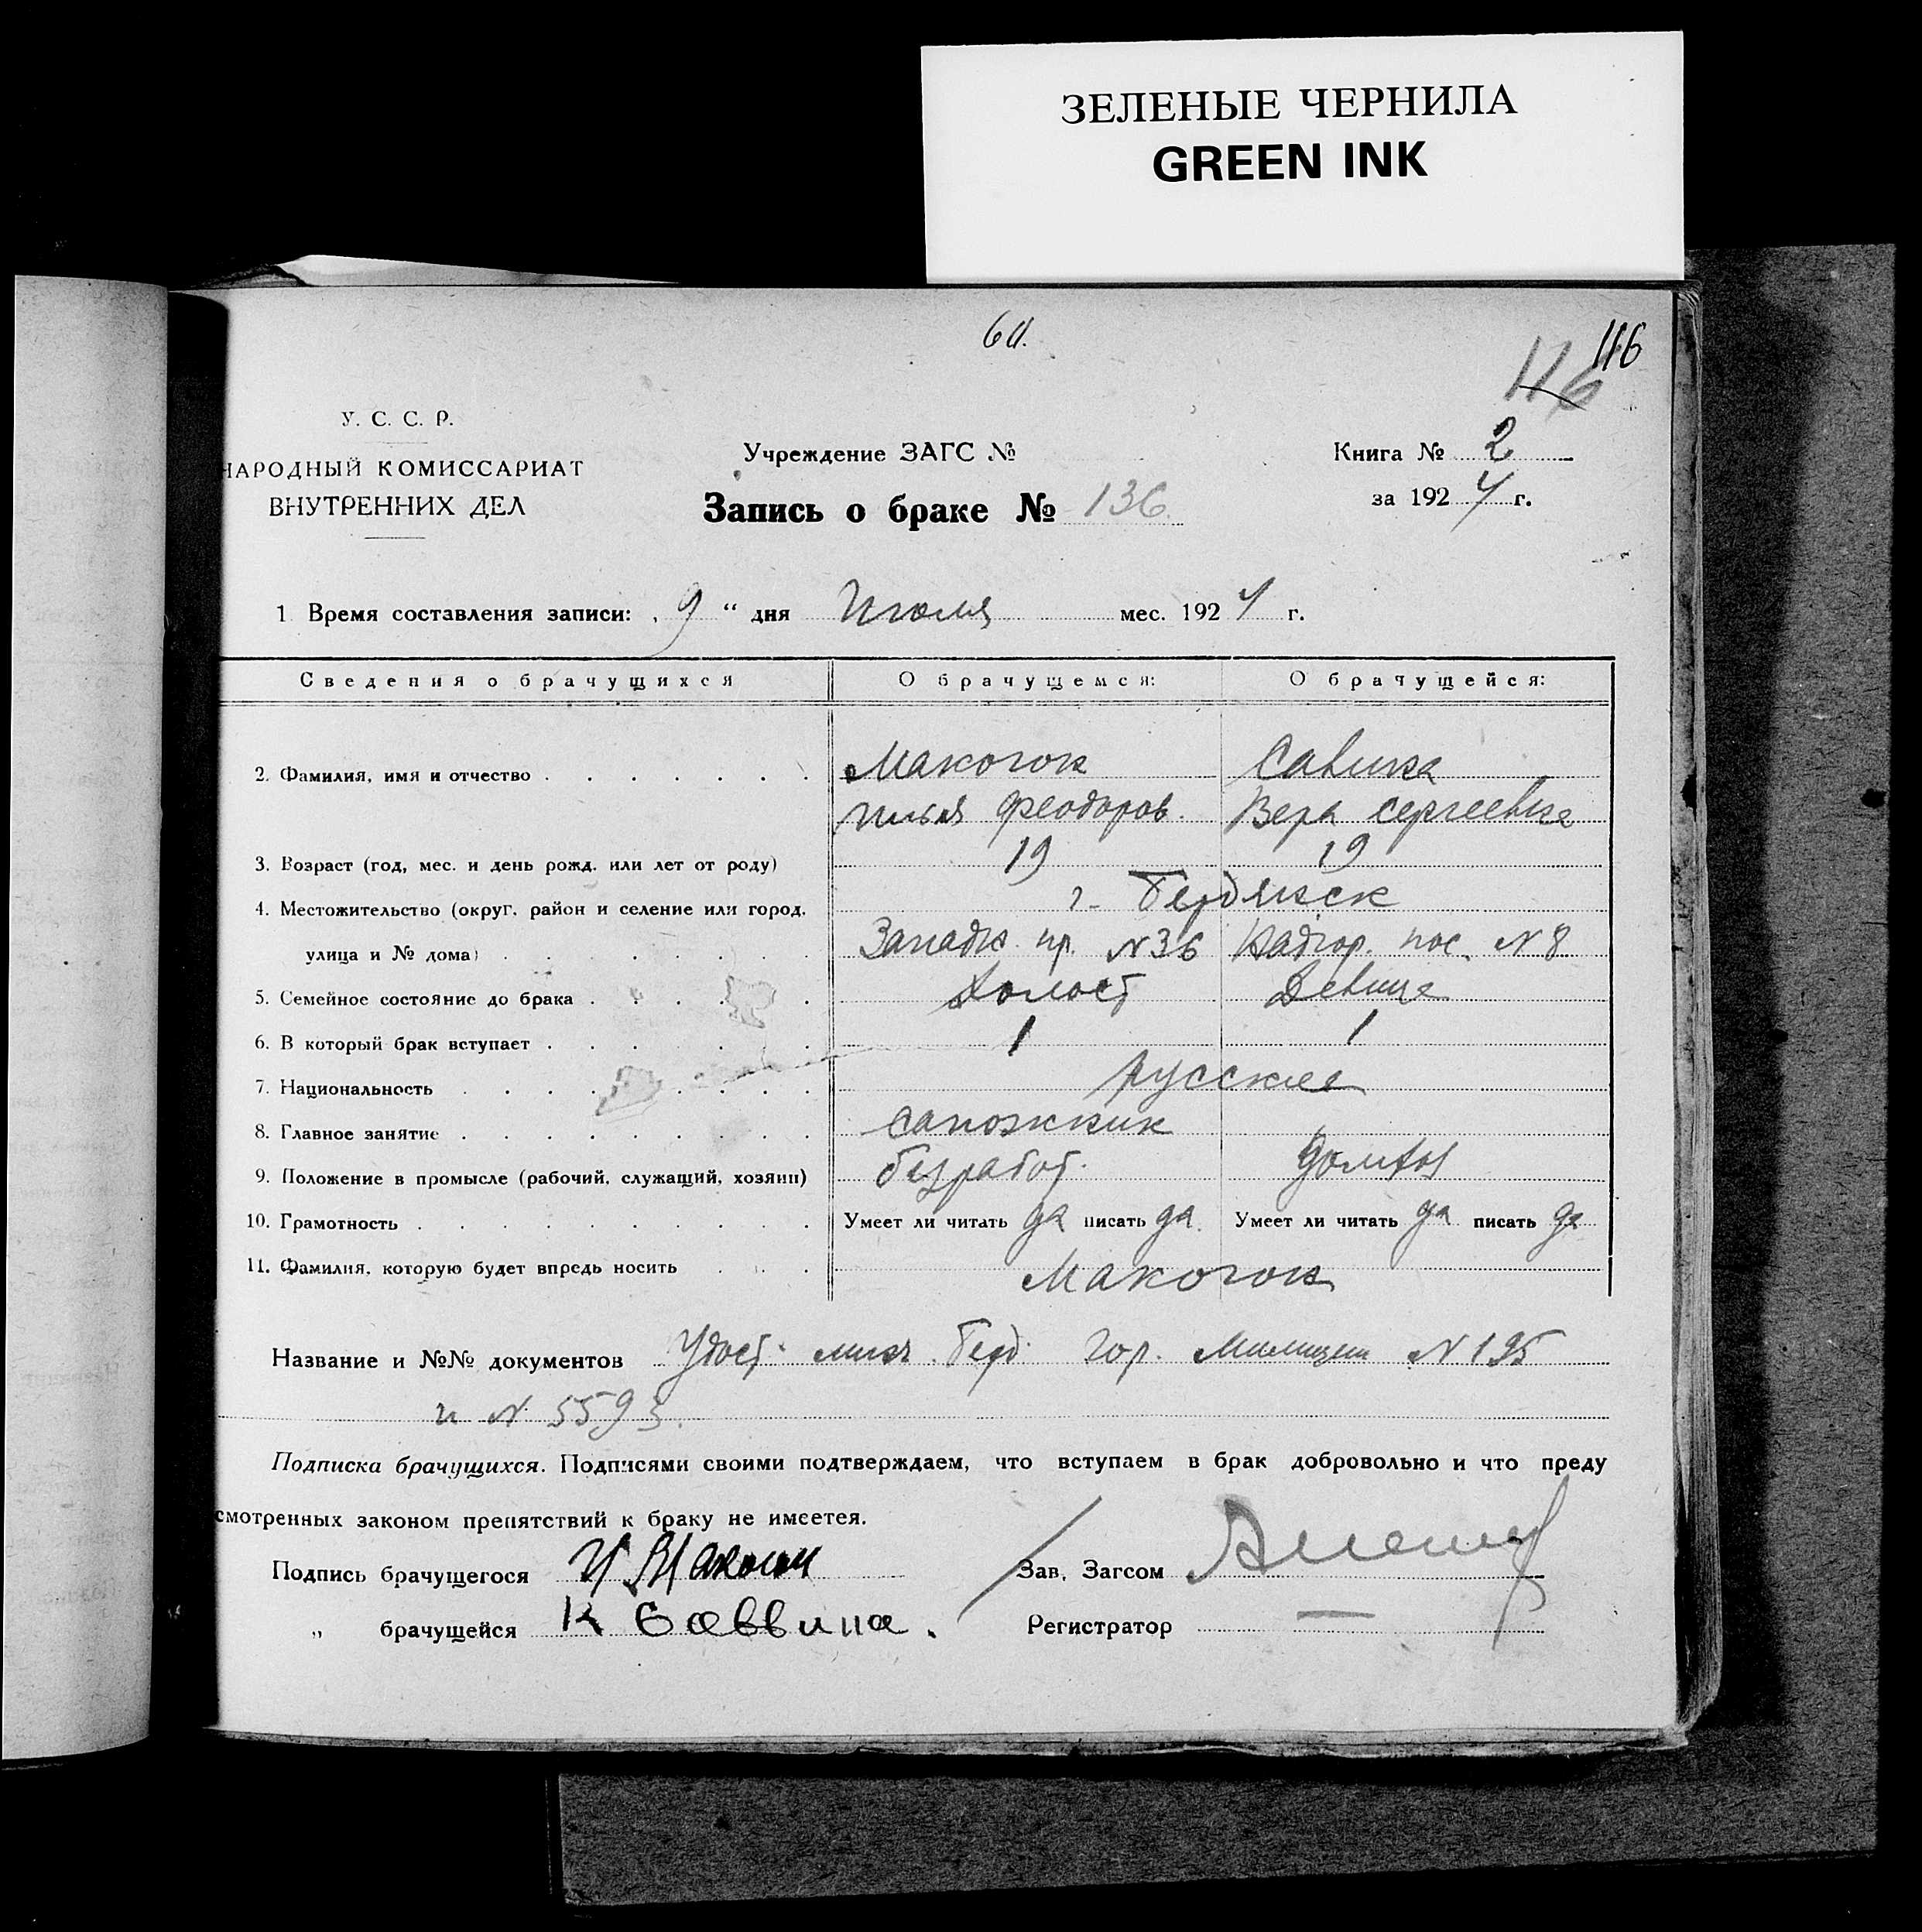 ЗЕЛЕНЫЕ ЧЕРНИЛА
GREEN INK
60.
116
116
У. С. С. Р.
НАРОДНЫЙ КОМИССАРИАТ
ВНУТРЕННИХ ДЕЛ
Учреждение ЗАГС №
Запись о браке № 136
Книга № 2
за 1924 г.
1 Время составления записи: „ 9 “ дня Июля мес. 1924 г.
Сведения о брачущихся О брачущемся: О брачущейся:
2. Фамилия, имя и отчество Макогон Савина
Илья Феодоров. Вера Сергеевна
3. Возраст (год, мес. и день рожд. или лет от роду) 19 19
4. Местожительство (округ, район и селение или город, г. Бердянск
улица и № дома) Западн. пр. №36 Надгор. пос. №8
5. Семейное состояние до брака Холост Девица
6. В который брак вступает 1 1
7. Национальность русские
8. Главное занятие сапожник
9. Положение в промысле (рабочий, служащий, хозяин) безработ.
10. Грамотность Умеет ли читать да писать да Умеет ли читать да писать да
11. Фамилия, которую будет впредь носить Макогон
Название и №№ документов Удост. личн. Берд. Гор. Милиции №195
и № 5593.
Подписка брачущихся. Подписями своими подтверждаем, что вступаем в брак добровольно и что преду
смотренных законом препятствий к браку не имеется.
Подпись брачущегося И Макогон Зав. Загсом
„ брачущейся К Саввина. Регистратор —